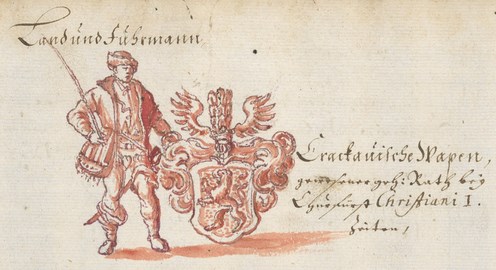 Land und Fuhrmann
Crackauische Wapen,
gewesener geh: Rath bey
Churfürst Christiani I.
Zeiten,